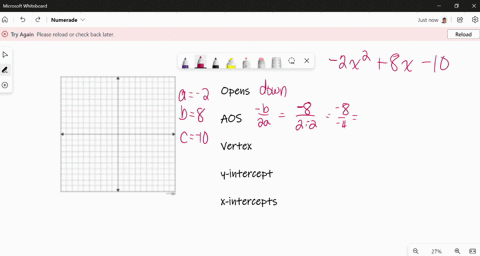 Microsoft Whiteboard
Numerade
Just now
Try Again Please reload or check back later.
Reload
-2x² + 8x - 10
a = -2
Opens down
b = 8
AOS -b/2a = -8/2·-2 = -8/-4 =
c = -10
Vertex
y-intercept
x-intercepts
27%